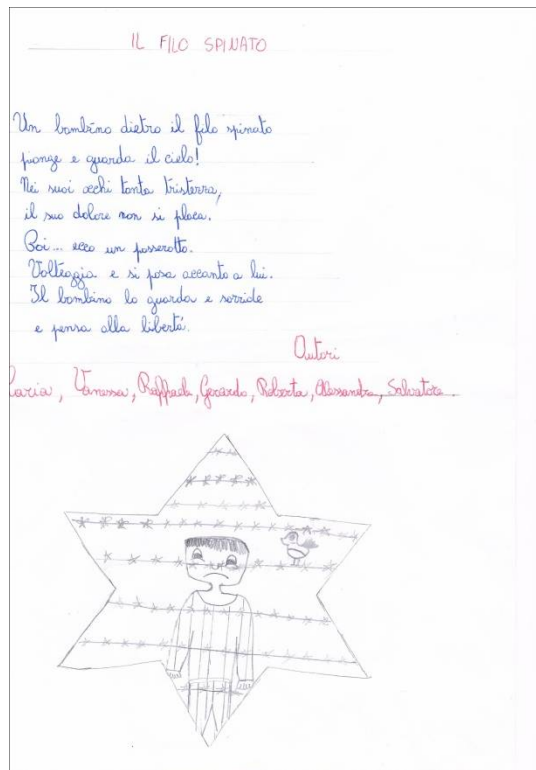 IL FILO SPINATO
Un bambino dietro il filo spinato
piange e guarda il cielo!
Nei suoi occhi tanta tristezza,
il suo dolore non si placa.
Poi... ecco un passerotto.
Volteggia e si posa accanto a lui.
Il bambino lo guarda e sorride
e pensa alla libertà.
Autori
Vanessa, Raffaele, Gerardo, Roberta, Alessandra, Salvatore.